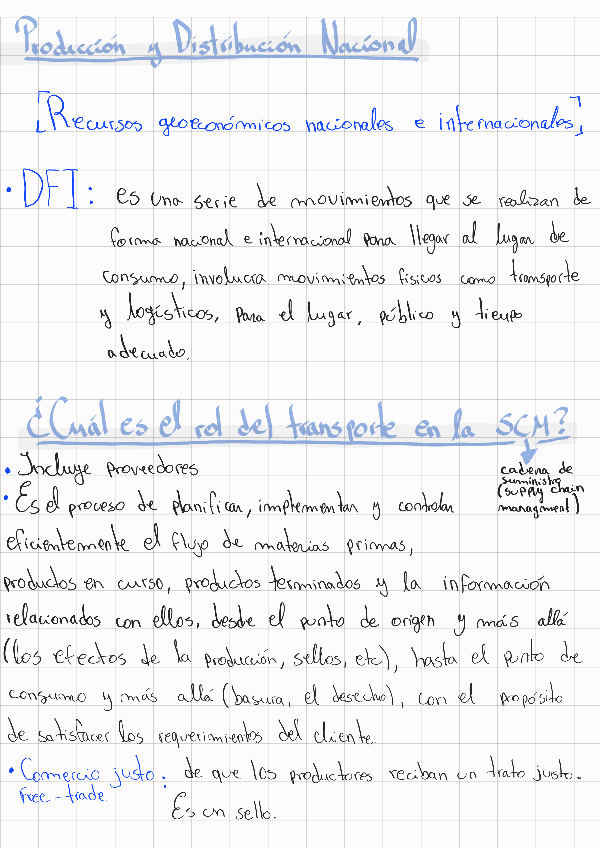 Producción y Distribución Nacional
[Recursos geoeconómicos nacionales e internacionales]
• DFI: es una serie de movimientos que se realizan de
forma nacional e internacional para llegar al lugar de
consumo, involucra movimientos físicos como transporte
y logísticos, para el lugar, público y tiempo
adecuado.
¿Cuál es el rol del transporte en la SCM?
• Incluye proveedores
cadena de
suministro
(supply chain
managment)
• Es el proceso de planificar, implementar y controlar
eficientemente el flujo de materias primas,
productos en curso, productos terminados y la información
relacionados con ellos, desde el punto de origen y más allá
(los efectos de la producción, sellos, etc), hasta el punto de
consumo y más allá (basura, el desecho), con el propósito
de satisfacer los requerimientos del cliente.
• Comercio justo: de que los productores reciban un trato justo.
Free-trade
Es un sello.